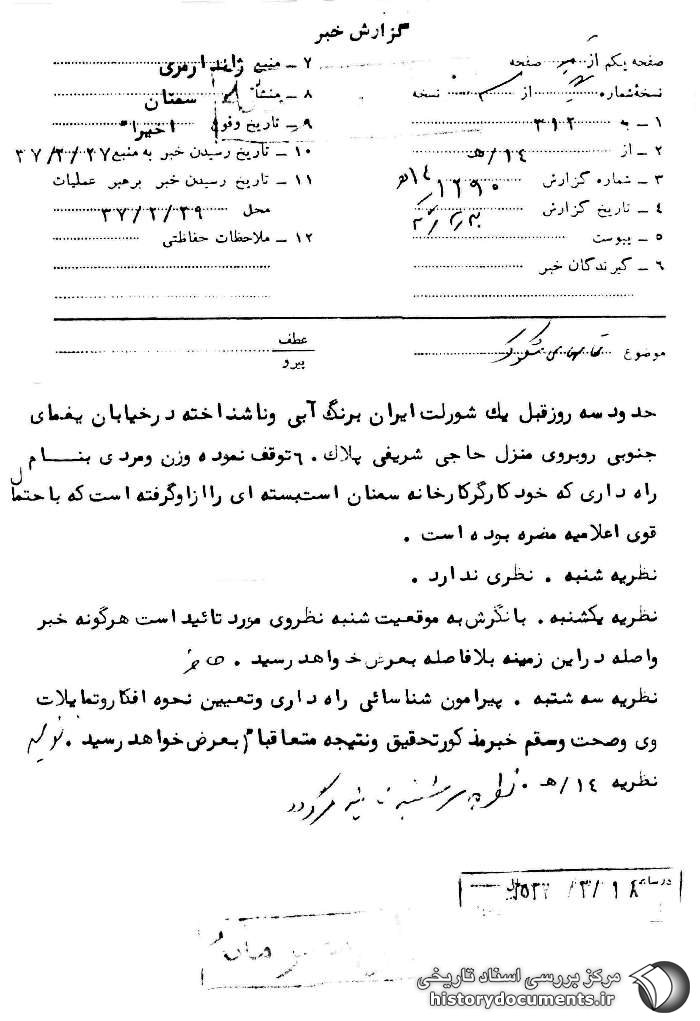 گزارش خبر
صفحه یکم از صفحه
نسخه شماره از نسخه
۱ ـ به ۳۱۲
۲ ـ از ۱۴/هـ
۳ ـ شماره گزارش ۱۲۹۰/۱۴هـ
۴ ـ تاریخ گزارش
۵ ـ پیوست
۶ ـ گیرندگان خبر
۷ ـ منبع ژاندارمری
۸ ـ منشأ سمنان
۹ ـ تاریخ وقوع اخیراً
۱۰ ـ تاریخ رسیدن خبر به منبع ۳۷/۲/۲۷
۱۱ ـ تاریخ رسیدن خبر برهبر عملیات
محل ۳۷/۲/۲۹
۱۲ ـ ملاحظات حفاظتی
موضوع مشکوک
عطف
پیرو
حدود سه روزقبل یك شورلت ایران برنگ آبی وناشناخته درخیابان یغمای
جنوبی روبروی منزل حاجی شریفی پلاك ۶۰ توقف نموده وزن ومردی بنام
راه داری که خود کارگرکارخانه سمنان است بسته ای راازاوگرفته است که باحتمال
قوی اعلامیه مضره بوده است .
نظریه شنبه . نظری ندارد .
نظریه یکشنبه . بانگرش به موقعیت شنبه نظروی مورد تائید است هرگونه خبر
واصله دراین زمینه بلافاصله بعرض خواهد رسید .
نظریه سه شنبه . پیرامون شناسائی راه داری وتعیین نحوه افکاروتمایلات
وی وصحت وسقم خبرمذکورتحقیق ونتیجه متعاقباً بعرض خواهد رسید .
نظریه ۱۴/هـ . نظریه سه شنبه تائید میگردد
۱۸/۳/۲۵۳۷
مرکز بررسی اسناد تاریخی
historydocuments.ir